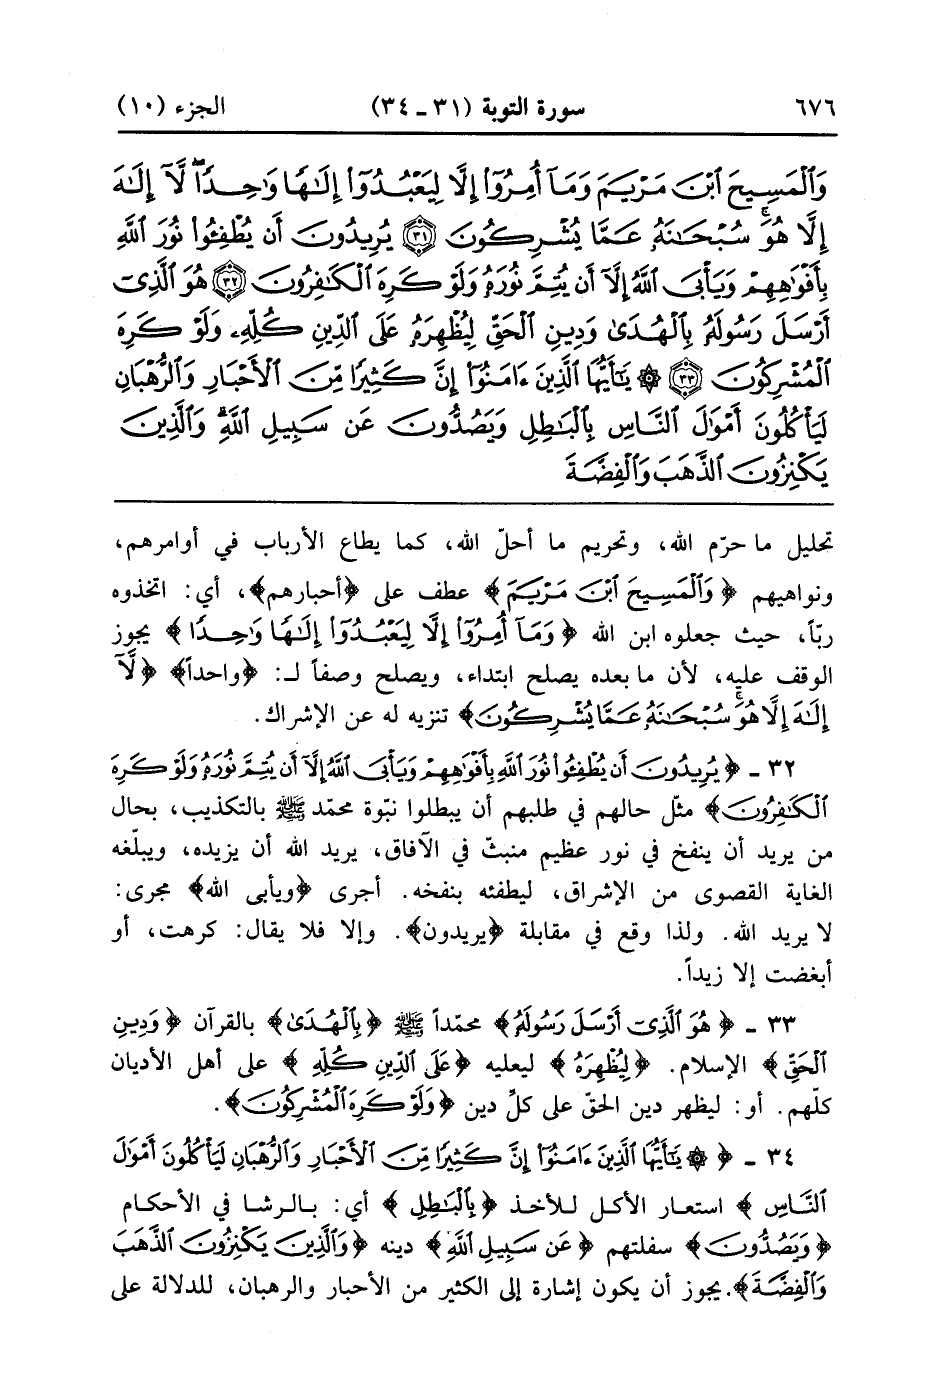 ٦٧٦ سورة التوبة (٣١ ـ ٣٤) الجزء (١٠)
وَٱلْمَسِيحَ ٱبْنَ مَرْيَمَ وَمَآ أُمِرُوٓا۟ إِلَّا لِيَعْبُدُوٓا۟ إِلَٰهًا وَٰحِدًا ۖ لَّآ إِلَٰهَ
إِلَّا هُوَ ۚ سُبْحَٰنَهُۥ عَمَّا يُشْرِكُونَ ﴿٣١﴾ يُرِيدُونَ أَن يُطْفِـُٔوا۟ نُورَ ٱللَّهِ
بِأَفْوَٰهِهِمْ وَيَأْبَى ٱللَّهُ إِلَّآ أَن يُتِمَّ نُورَهُۥ وَلَوْ كَرِهَ ٱلْكَٰفِرُونَ ﴿٣٢﴾ هُوَ ٱلَّذِىٓ
أَرْسَلَ رَسُولَهُۥ بِٱلْهُدَىٰ وَدِينِ ٱلْحَقِّ لِيُظْهِرَهُۥ عَلَى ٱلدِّينِ كُلِّهِۦ وَلَوْ كَرِهَ
ٱلْمُشْرِكُونَ ﴿٣٣﴾ ۞ يَٰٓأَيُّهَا ٱلَّذِينَ ءَامَنُوٓا۟ إِنَّ كَثِيرًا مِّنَ ٱلْأَحْبَارِ وَٱلرُّهْبَانِ
لَيَأْكُلُونَ أَمْوَٰلَ ٱلنَّاسِ بِٱلْبَٰطِلِ وَيَصُدُّونَ عَن سَبِيلِ ٱللَّهِ ۗ وَٱلَّذِينَ
يَكْنِزُونَ ٱلذَّهَبَ وَٱلْفِضَّةَ
تحليل ما حرّم الله، وتحريم ما أحلّ الله، كما يطاع الأرباب في أوامرهم،
ونواهيهم ﴿وَٱلْمَسِيحَ ٱبْنَ مَرْيَمَ﴾ عطف على ﴿أحبارهم﴾، أي: اتخذوه
ربّاً، حيث جعلوه ابن الله ﴿وَمَآ أُمِرُوٓا۟ إِلَّا لِيَعْبُدُوٓا۟ إِلَٰهًا وَٰحِدًا﴾ يجوز
الوقف عليه، لأن ما بعده يصلح ابتداء، ويصلح وصفاً لـ: ﴿واحداً﴾ ﴿لَّآ
إِلَٰهَ إِلَّا هُوَ ۚ سُبْحَٰنَهُۥ عَمَّا يُشْرِكُونَ﴾ تنزيه له عن الإشراك.
٣٢ ـ ﴿يُرِيدُونَ أَن يُطْفِـُٔوا۟ نُورَ ٱللَّهِ بِأَفْوَٰهِهِمْ وَيَأْبَى ٱللَّهُ إِلَّآ أَن يُتِمَّ نُورَهُۥ وَلَوْ كَرِهَ
ٱلْكَٰفِرُونَ﴾ مثّل حالهم في طلبهم أن يبطلوا نبّوة محمّد ﷺ بالتكذيب، بحال
من يريد أن ينفخ في نور عظيم منبثّ في الآفاق، يريد الله أن يزيده، ويبلّغه
الغاية القصوى من الإشراق، ليطفئه بنفخه. أجرى ﴿ويأبى الله﴾ مجرى:
لا يريد الله. ولذا وقع في مقابلة ﴿يريدون﴾. وإلا فلا يقال: كرهت، أو
أبغضت إلا زيداً.
٣٣ ـ ﴿هُوَ ٱلَّذِىٓ أَرْسَلَ رَسُولَهُۥ﴾ محمّداً ﷺ ﴿بِٱلْهُدَىٰ﴾ بالقرآن ﴿وَدِينِ
ٱلْحَقِّ﴾ الإسلام. ﴿لِيُظْهِرَهُۥ﴾ ليعليه ﴿عَلَى ٱلدِّينِ كُلِّهِۦ﴾ على أهل الأديان
كلّهم. أو: ليظهر دين الحقّ على كلِّ دين ﴿وَلَوْ كَرِهَ ٱلْمُشْرِكُونَ﴾.
٣٤ ـ ﴿۞ يَٰٓأَيُّهَا ٱلَّذِينَ ءَامَنُوٓا۟ إِنَّ كَثِيرًا مِّنَ ٱلْأَحْبَارِ وَٱلرُّهْبَانِ لَيَأْكُلُونَ أَمْوَٰلَ
ٱلنَّاسِ﴾ استعار الأكل للأخذ ﴿بِٱلْبَٰطِلِ﴾ أي: بالرشا في الأحكام
﴿وَيَصُدُّونَ﴾ سفلتهم ﴿عَن سَبِيلِ ٱللَّهِ﴾ دينه ﴿وَٱلَّذِينَ يَكْنِزُونَ ٱلذَّهَبَ
وَٱلْفِضَّةَ﴾. يجوز أن يكون إشارة إلى الكثير من الأحبار والرهبان، للدلالة على